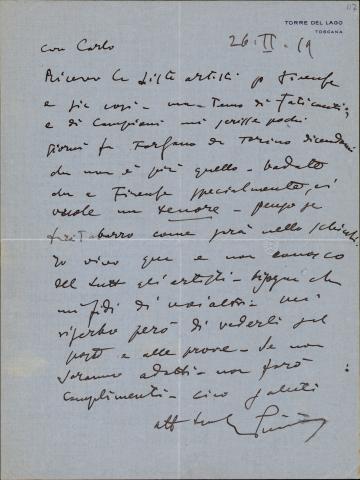 TORRE DEL LAGO
TOSCANA
26.II.19
caro Carlo
Ricevo la lista artisti p Firenze
e sta così - ma temo di Taticanti,
e di Campioni mi scrisse pochi
giorni fa Forzano da Torino dicendomi
che non è più quello - badate
che a Firenze specialmente, ci
vuole un tenore - penso se
tabarro come pure nello Schicchi
Io vivo qui e non conosco
del tutto gli artisti - bisogna che
mi fidi di voialtri - mi
riserbo però di vederli sul
posto e alle prove - Se non
saranno adatti - non farò
complimenti - ciao saluti
aff tuo Puccini